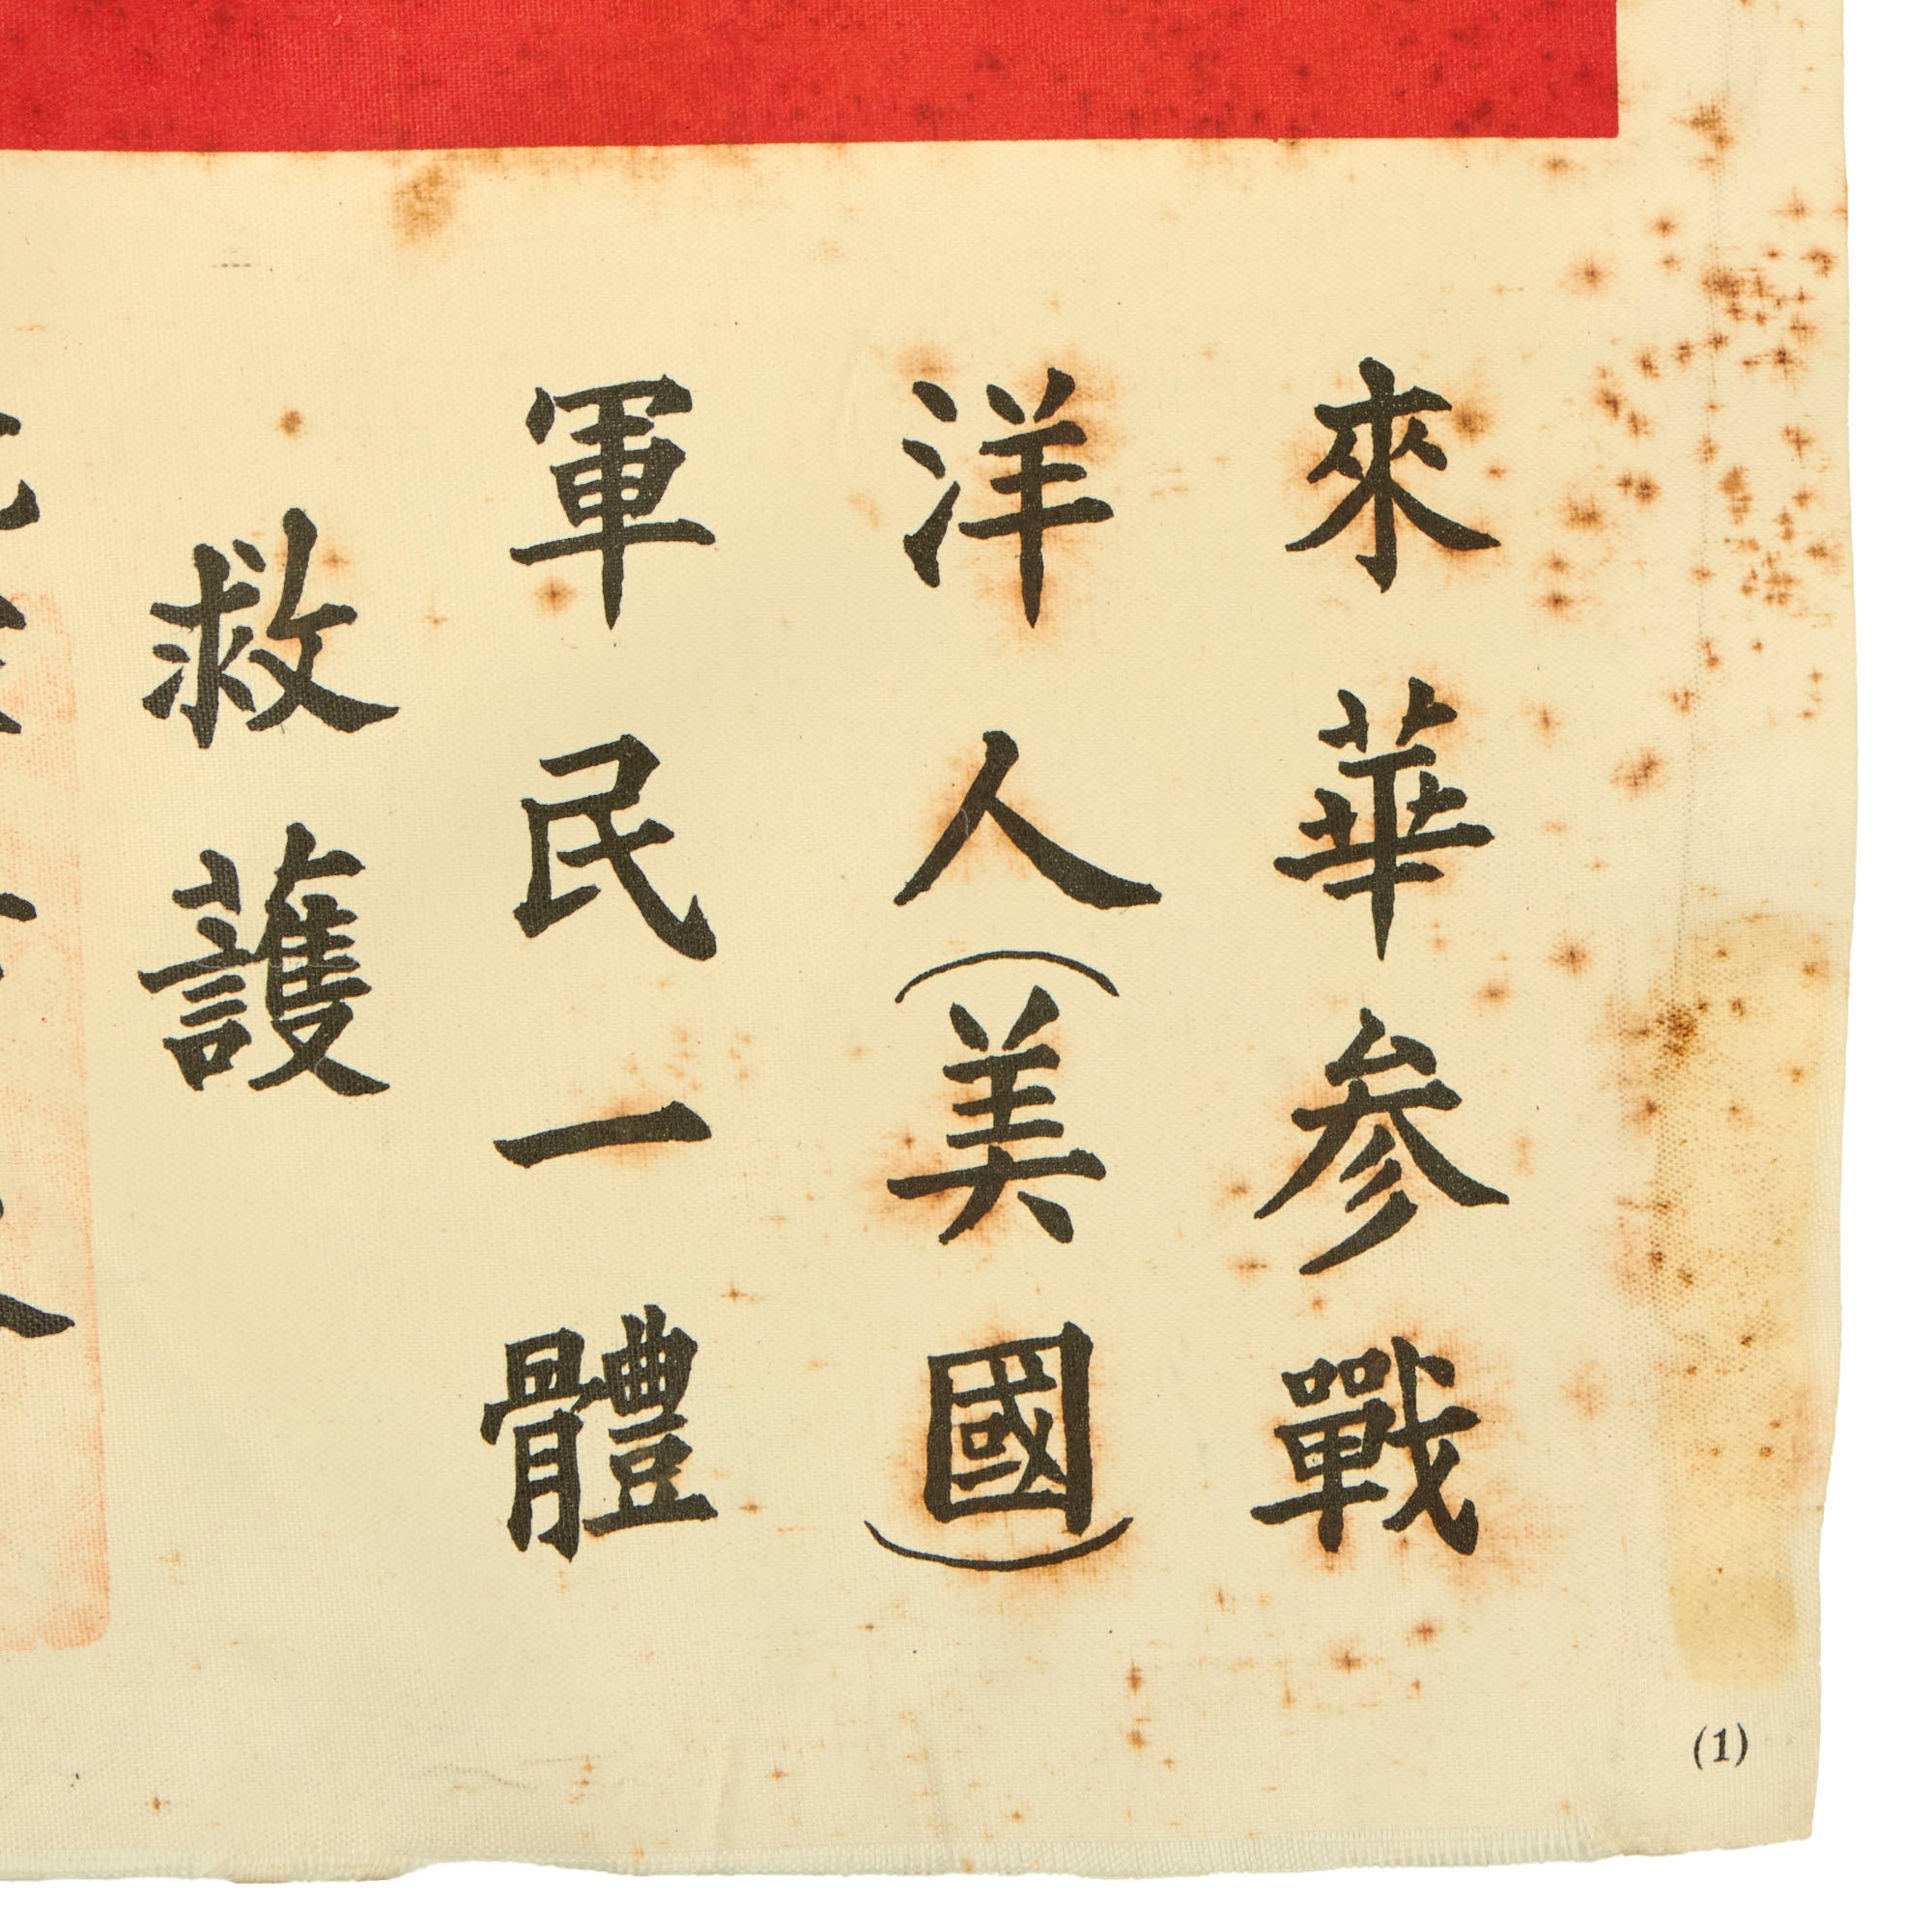 來華参戰
洋人(美國)
軍民一體
救護
(1)